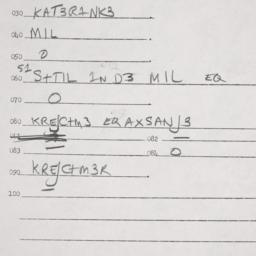 030 KAT3R1NK3
040 MIL
050 0
060 S1 S+TIL IN D3 MIL EQ
070 O
080 KREJC+M3 EQ AXSANJ3
082
083 084 O
090 KREJC+M3R
100